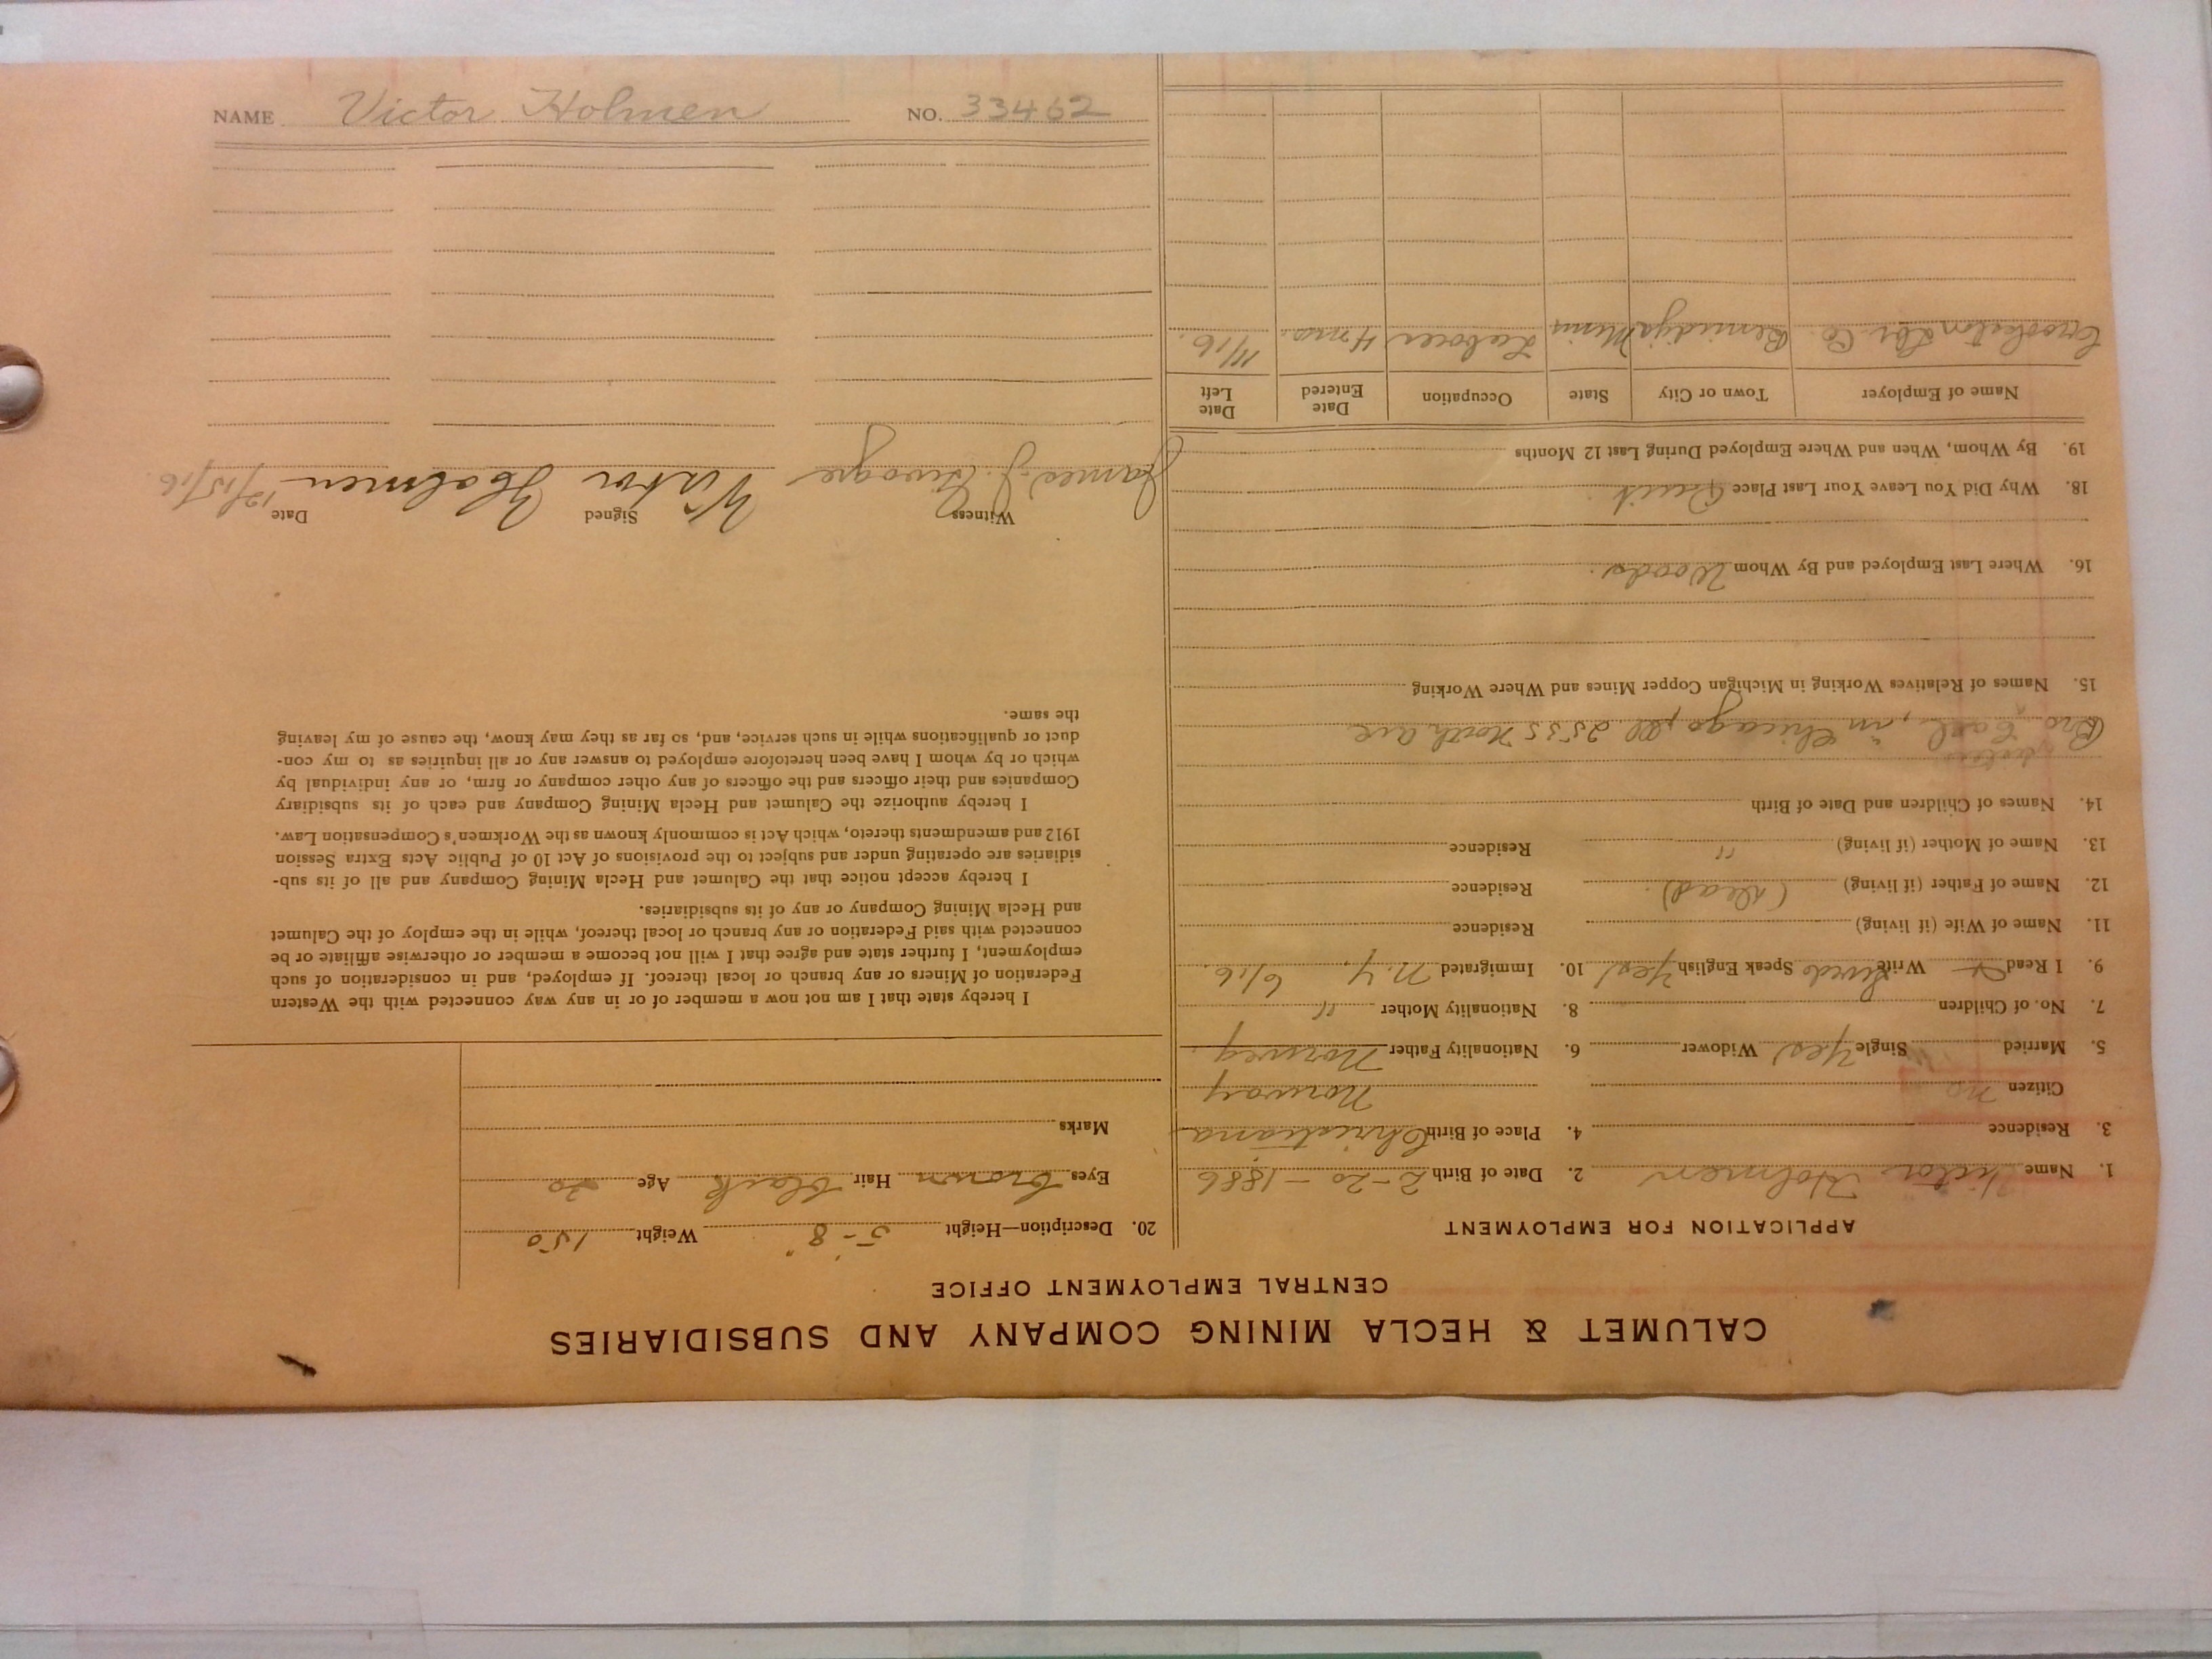 CALUMET & HECLA MINING COMPANY AND SUBSIDIARIES
CENTRAL EMPLOYMENT OFFICE
APPLICATION FOR EMPLOYMENT
1. Name Victor Holmen 2. Date of Birth 2-20-1886
3. Residence 4. Place of Birth Christiana
Citizen no Norway
5. Married Single Yes Widower 6. Nationality Father Norweg.
7. No. of Children 8. Nationality Mother "
9. I Read & Write Swede Speak English Yes 10. Immigrated N.Y. 6/16.
11. Name of Wife (if living) Residence
12. Name of Father (if living) (dead). Residence
13. Name of Mother (if living) " Residence
14. Names of Children and Date of Birth
Bro Carl, in Chicago, Ill 2535 North Ave
15. Names of Relatives Working in Michigan Copper Mines and Where Working
16. Where Last Employed and By Whom Woods.
18. Why Did You Leave Your Last Place Quit.
19. By Whom, When and Where Employed During Last 12 Months
Name of Employer Town or City State Occupation Date Entered Date Left
Lbr. Co. Bemidija Minn Laborer 4 mos. 11/16.
20. Description—Height 5'-8" Weight 150
Eyes brown Hair black Age 30
Marks
I hereby state that I am not now a member of or in any way connected with the Western
Federation of Miners or any branch or local thereof. If employed, and in consideration of such
employment, I further state and agree that I will not become a member or otherwise affiliate or be
connected with said Federation or any branch or local thereof, while in the employ of the Calumet
and Hecla Mining Company or any of its subsidiaries.
I hereby accept notice that the Calumet and Hecla Mining Company and all of its sub-
sidiaries are operating under and subject to the provisions of Act 10 of Public Acts Extra Session
1912 and amendments thereto, which Act is commonly known as the Workmen's Compensation Law.
I hereby authorize the Calumet and Hecla Mining Company and each of its subsidiary
Companies and their officers and the officers of any other company or firm, or any individual by
which or by whom I have been heretofore employed to answer any or all inquiries as to my con-
duct or qualifications while in such service, and, so far as they may know, the cause of my leaving
the same.
Witness Signed Date
James J. Viktor Holmen 12/15/16.
NAME Victor Holmen NO. 33462